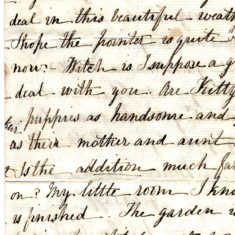 deal in this beautiful weath
I hope the pointer is quite
now? Witch is I suppose a g
deal with you. Are Kitty
puppies as handsome and
as their mother and aunt
Is the addition much far
on? My little room I kno
is finished. The garden is